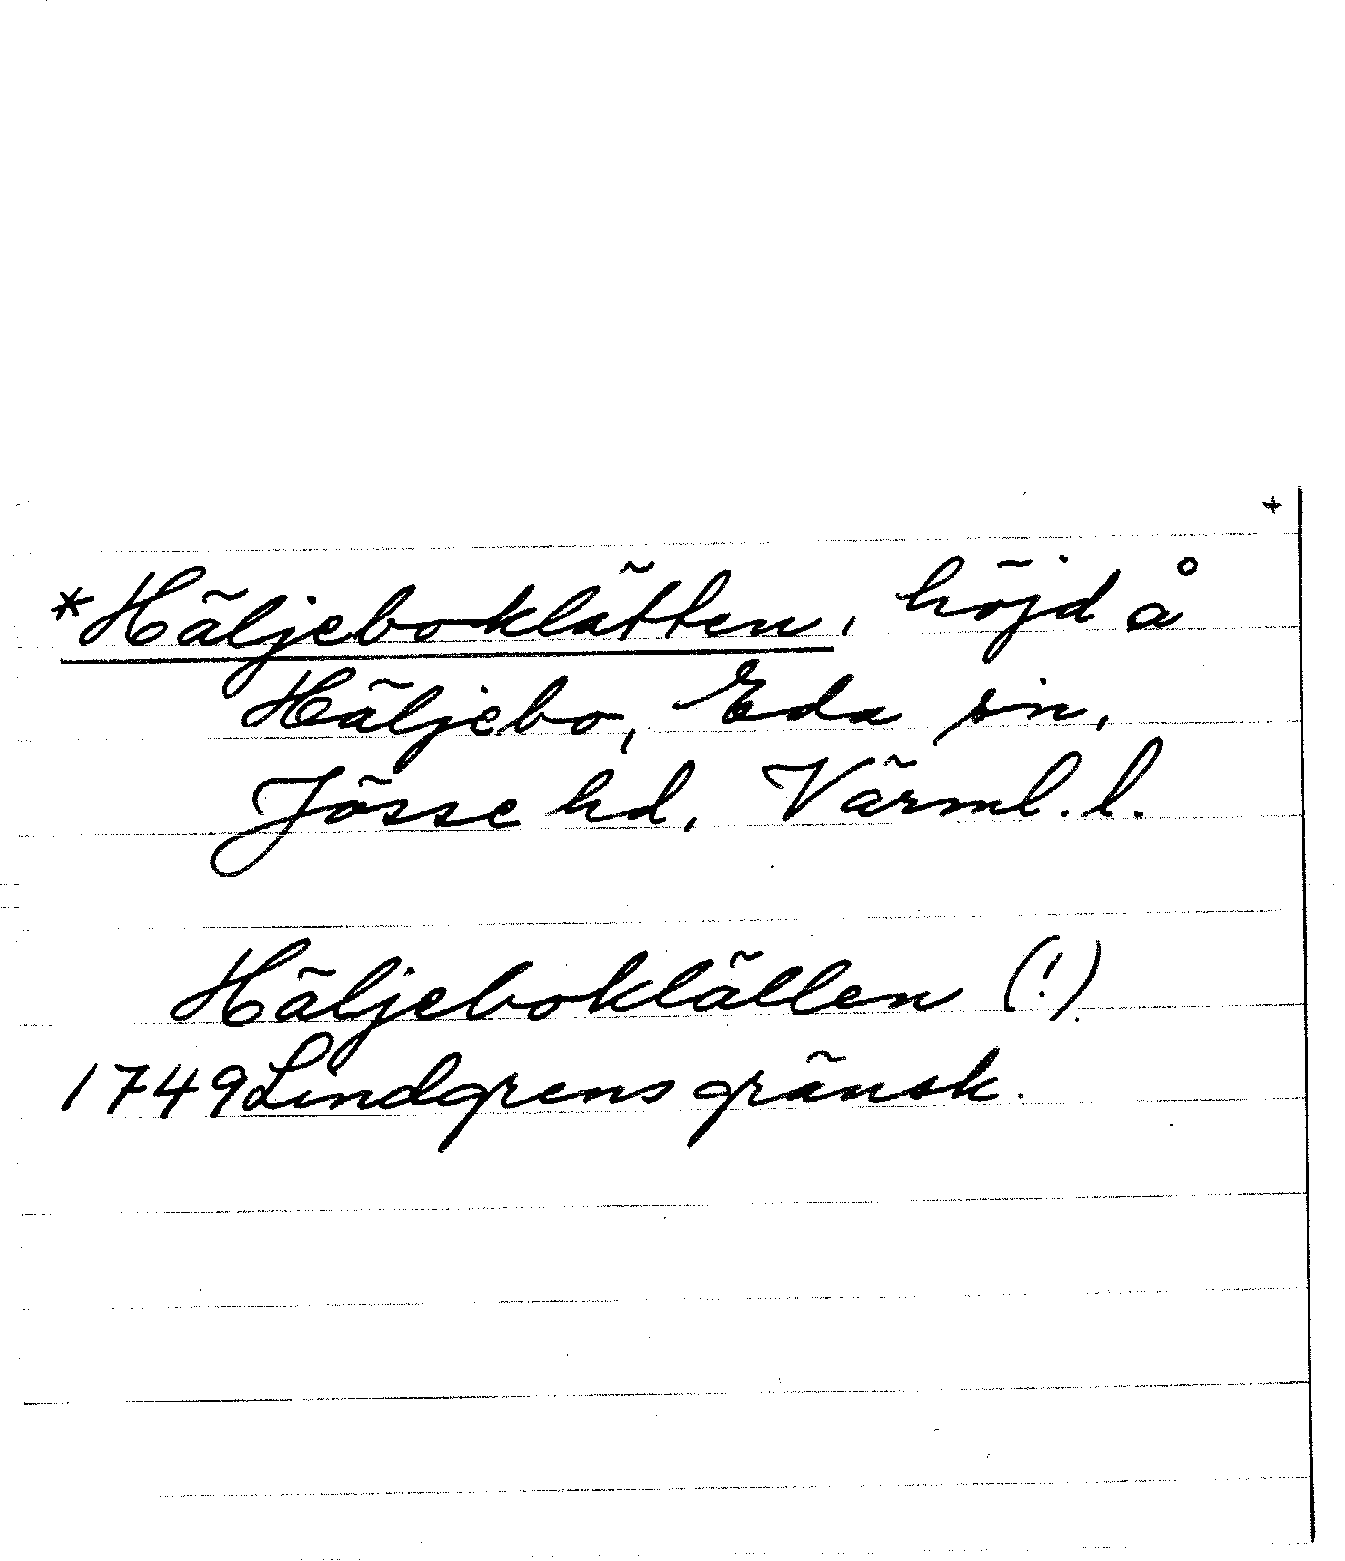 +
*Häljeboklätten, höjd å
Häljebo, Eda sn,
Jösse hd, Värml. l.
Häljeboklällen (!)
1749 Lindgrens gränsk.